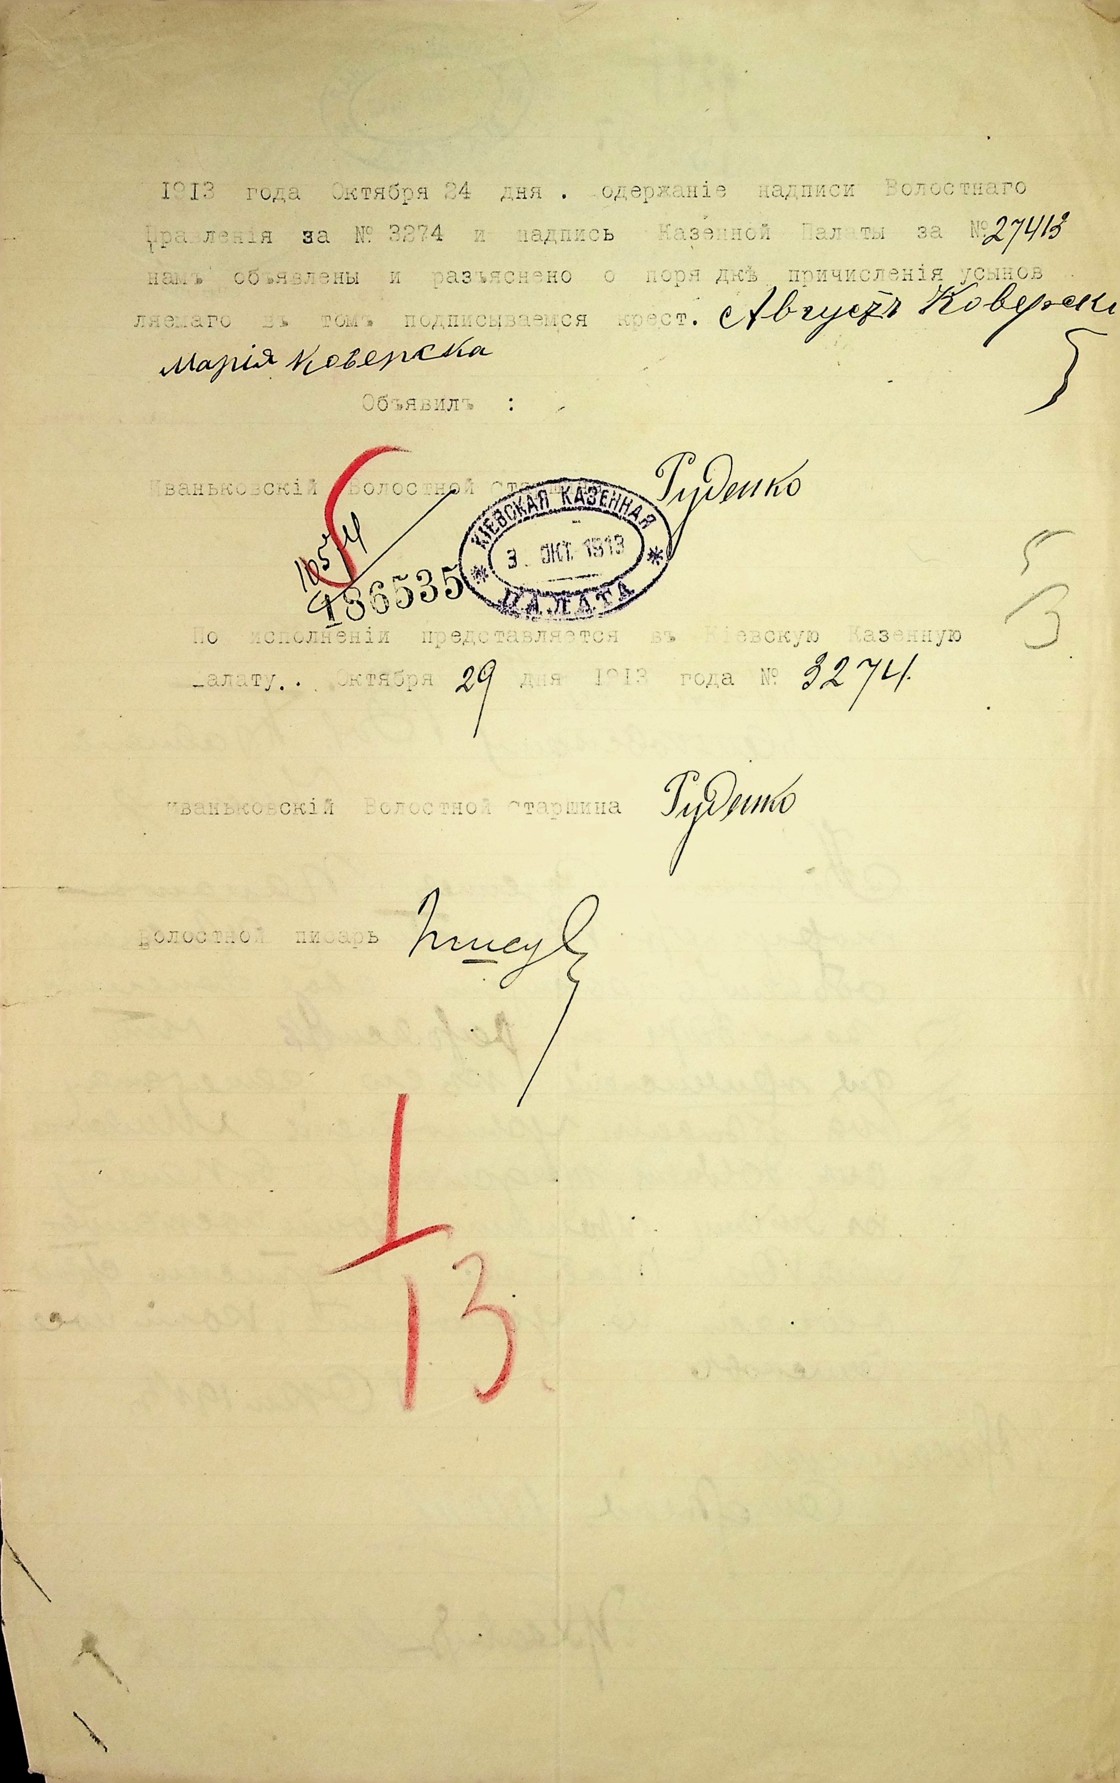 1913 года Октября 24 дня . одержаніе надписи Волостнаго
Правленія за № 3274 и надпись Казенной Палаты за № 27413
намъ объявлены и разъяснено о поря дкѣ причисленія усынов
ляемаго въ томъ подписываемся крест. Августъ Коверски
Марія Коверска
Объявилъ :
Иваньковскій Волостной Старшина Руденко
КІЕВСКАЯ КАЗЕННАЯ
3 ОКТ. 1913
ПАЛАТА
186535
По исполненіи представляется въ Кіевскую Казенную
палату. . Октября 29 дня 1913 года № 3274.
иваньковскій Волостной Старшина Руденко
Волостной писарь
1
13